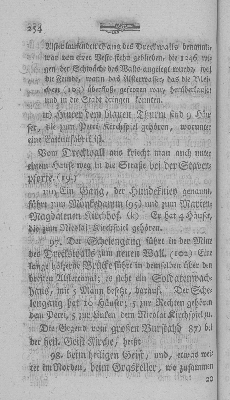 254
Alsterlaufenden Gang des Dreckwalls benennt,
war von einer Veste stehn geblieben, die 1246. we-
gen der Schwäche des Walls angelegt wurde, weil
die Feinde, wann das Alsterwasser, das die Blei-
chen (102) überfloß, gefroren war, herüberlaufen
und in die Stadt dringen konnten.
Hinter dem blauen Thurm sind 9 Häu-
ser, die zum Petri Kirchspiel gehören, worunter
eine Cattunfabrik ist.
Vom Dreckwall aus kriecht man auch unter
einem Hause weg in die Straße bey der Slaver-
pforte. (19.)
Ein Gang, der Hundekuley genannt,
führt zum Mönkedamm (95) und zum Marien-
Magdalenen Kirchhof. Er hat 4 Häuser,
die zum Nicolai Kirchspiel gehören.
97. Der Schelengang führt in der Mitte
des Dreckwalls zum neuen Wall. (102) Eine
lange hölzerne Brücke führt in demselben über den
breiten Alsterarm; es steht ein Soldatenwach-
haus, mit 5 Mann besetzt, darauf. Der Sche-
lengang hat 10 Häuser; 5 zur Rechten gehören
dem Petri, 5 zur Linken dem Nicolai Kirchspiel zu.
Die Gegend vom großen Burstah (87) bis
der heil. Geist Kirche, heißt
98. beim heiligen Geist, und, etwas wei-
ter im Norden, beim Graskeller, wo zusammen
20